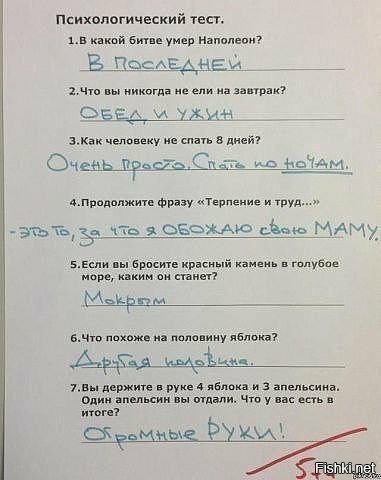 Психологический тест.
1.В какой битве умер Наполеон?
В последней
2.Что вы никогда не ели на завтрак?
ОБЕД И УЖИН
3.Как человеку не спать 8 дней?
Очень просто. Спать по ночам.
4.Продолжите фразу «Терпение и труд...»
-это то, за что я ОБОЖАЮ свою МАМУ.
5.Если вы бросите красный камень в голубое
море, каким он станет?
Мокрым
6.Что похоже на половину яблока?
Другая половина.
7.Вы держите в руке 4 яблока и 3 апельсина.
Один апельсин вы отдали. Что у вас есть в
итоге?
Огромные РУКИ!
Fishki.net